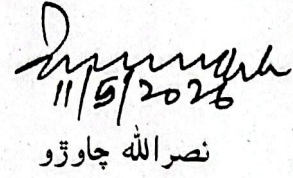 11/5/2026
نصرالله چاوڙو